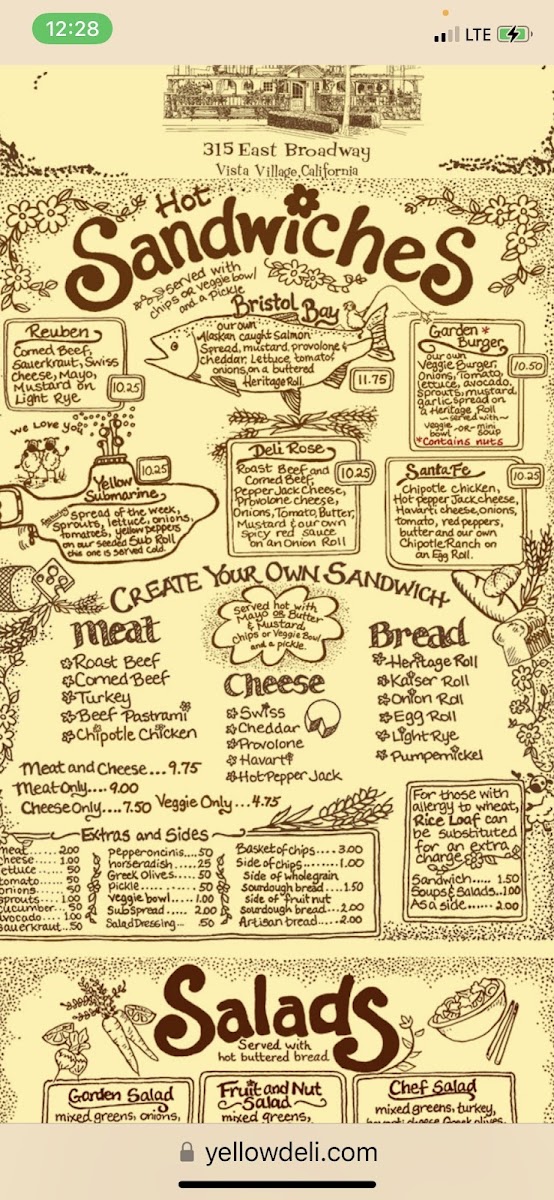 12:28
LTE
315 East Broadway
Vista Village, California
Hot
Sandwiches
served with
chips or veggie bowl
and a pickle
Reuben
Corned Beef,
Sauerkraut, Swiss
Cheese, Mayo,
Mustard on
Light Rye
10.25
Bristol Bay
our own
Alaskan caught Salmon
Spread, mustard, provolone &
cheddar, Lettuce, tomato,
onions, on a buttered
Heritage Roll.
11.75
Garden *
Burger
our own
Veggie Burger,
Onions, Tomato,
lettuce, avocado,
Sprouts, mustard,
garlic spread on
a Heritage Roll
~served with~
veggie -or- mini
bowl soup
*Contains nuts
10.50
we Love You
Yellow
Submarine
10.25
Spread of the week,
Sprouts, lettuce, onions,
tomatoes, yellow peppers
on our seeded Sub Roll
this one is served cold.
Deli Rose
Roast Beef and
Corned Beef,
Pepper Jack Cheese,
Provolone cheese,
Onions, Tomato, Butter,
Mustard & our own
Spicy red sauce
on an Onion Roll
10.25
Santa Fe
Chipotle chicken,
Hot pepper Jack cheese,
Havarti cheese, onions,
tomato, red peppers,
butter and our own
Chipotle Ranch on
an Egg Roll.
10.25
Create Your Own Sandwich
served hot with
Mayo or Butter
& Mustard,
chips or Veggie Bowl
and a pickle.
Meat
Roast Beef
Corned Beef
Turkey
Beef Pastrami
Chipotle Chicken
Cheese
Swiss
Cheddar
Provolone
Havarti
Hot Pepper Jack
Bread
Heritage Roll
Kaiser Roll
Onion Roll
Egg Roll
Light Rye
Pumpernickel
Meat and Cheese...9.75
Meat Only...9.00
Cheese Only....7.50 Veggie Only...4.75
Extras and Sides
meat 2.00
cheese 1.00
lettuce 50
tomato 50
onions 50
sprouts 1.00
cucumber 50
avocado 1.00
sauerkraut..50
Pepperoncinis....50
horseradish....25
Greek Olives.....50
pickle......50
Veggie bowl....1.00
Sub Spread.... 2.00
Salad Dressing... .50
Basket of chips.... 3.00
Side of chips.......1.00
Side of whole grain
sourdough bread....1.50
side of fruit nut
sourdough bread...2.00
Artisan bread......2.00
For those with
allergy to wheat,
Rice Loaf can
be substituted
for an extra
charge
Sandwich...... 1.50
Soups & Salads..1.00
As a side...... 2.00
Salads
Served with
hot buttered bread
Garden Salad
mixed greens, onions,
Fruit and Nut
Salad
mixed greens,
Chef Salad
mixed greens, turkey,
yellowdeli.com